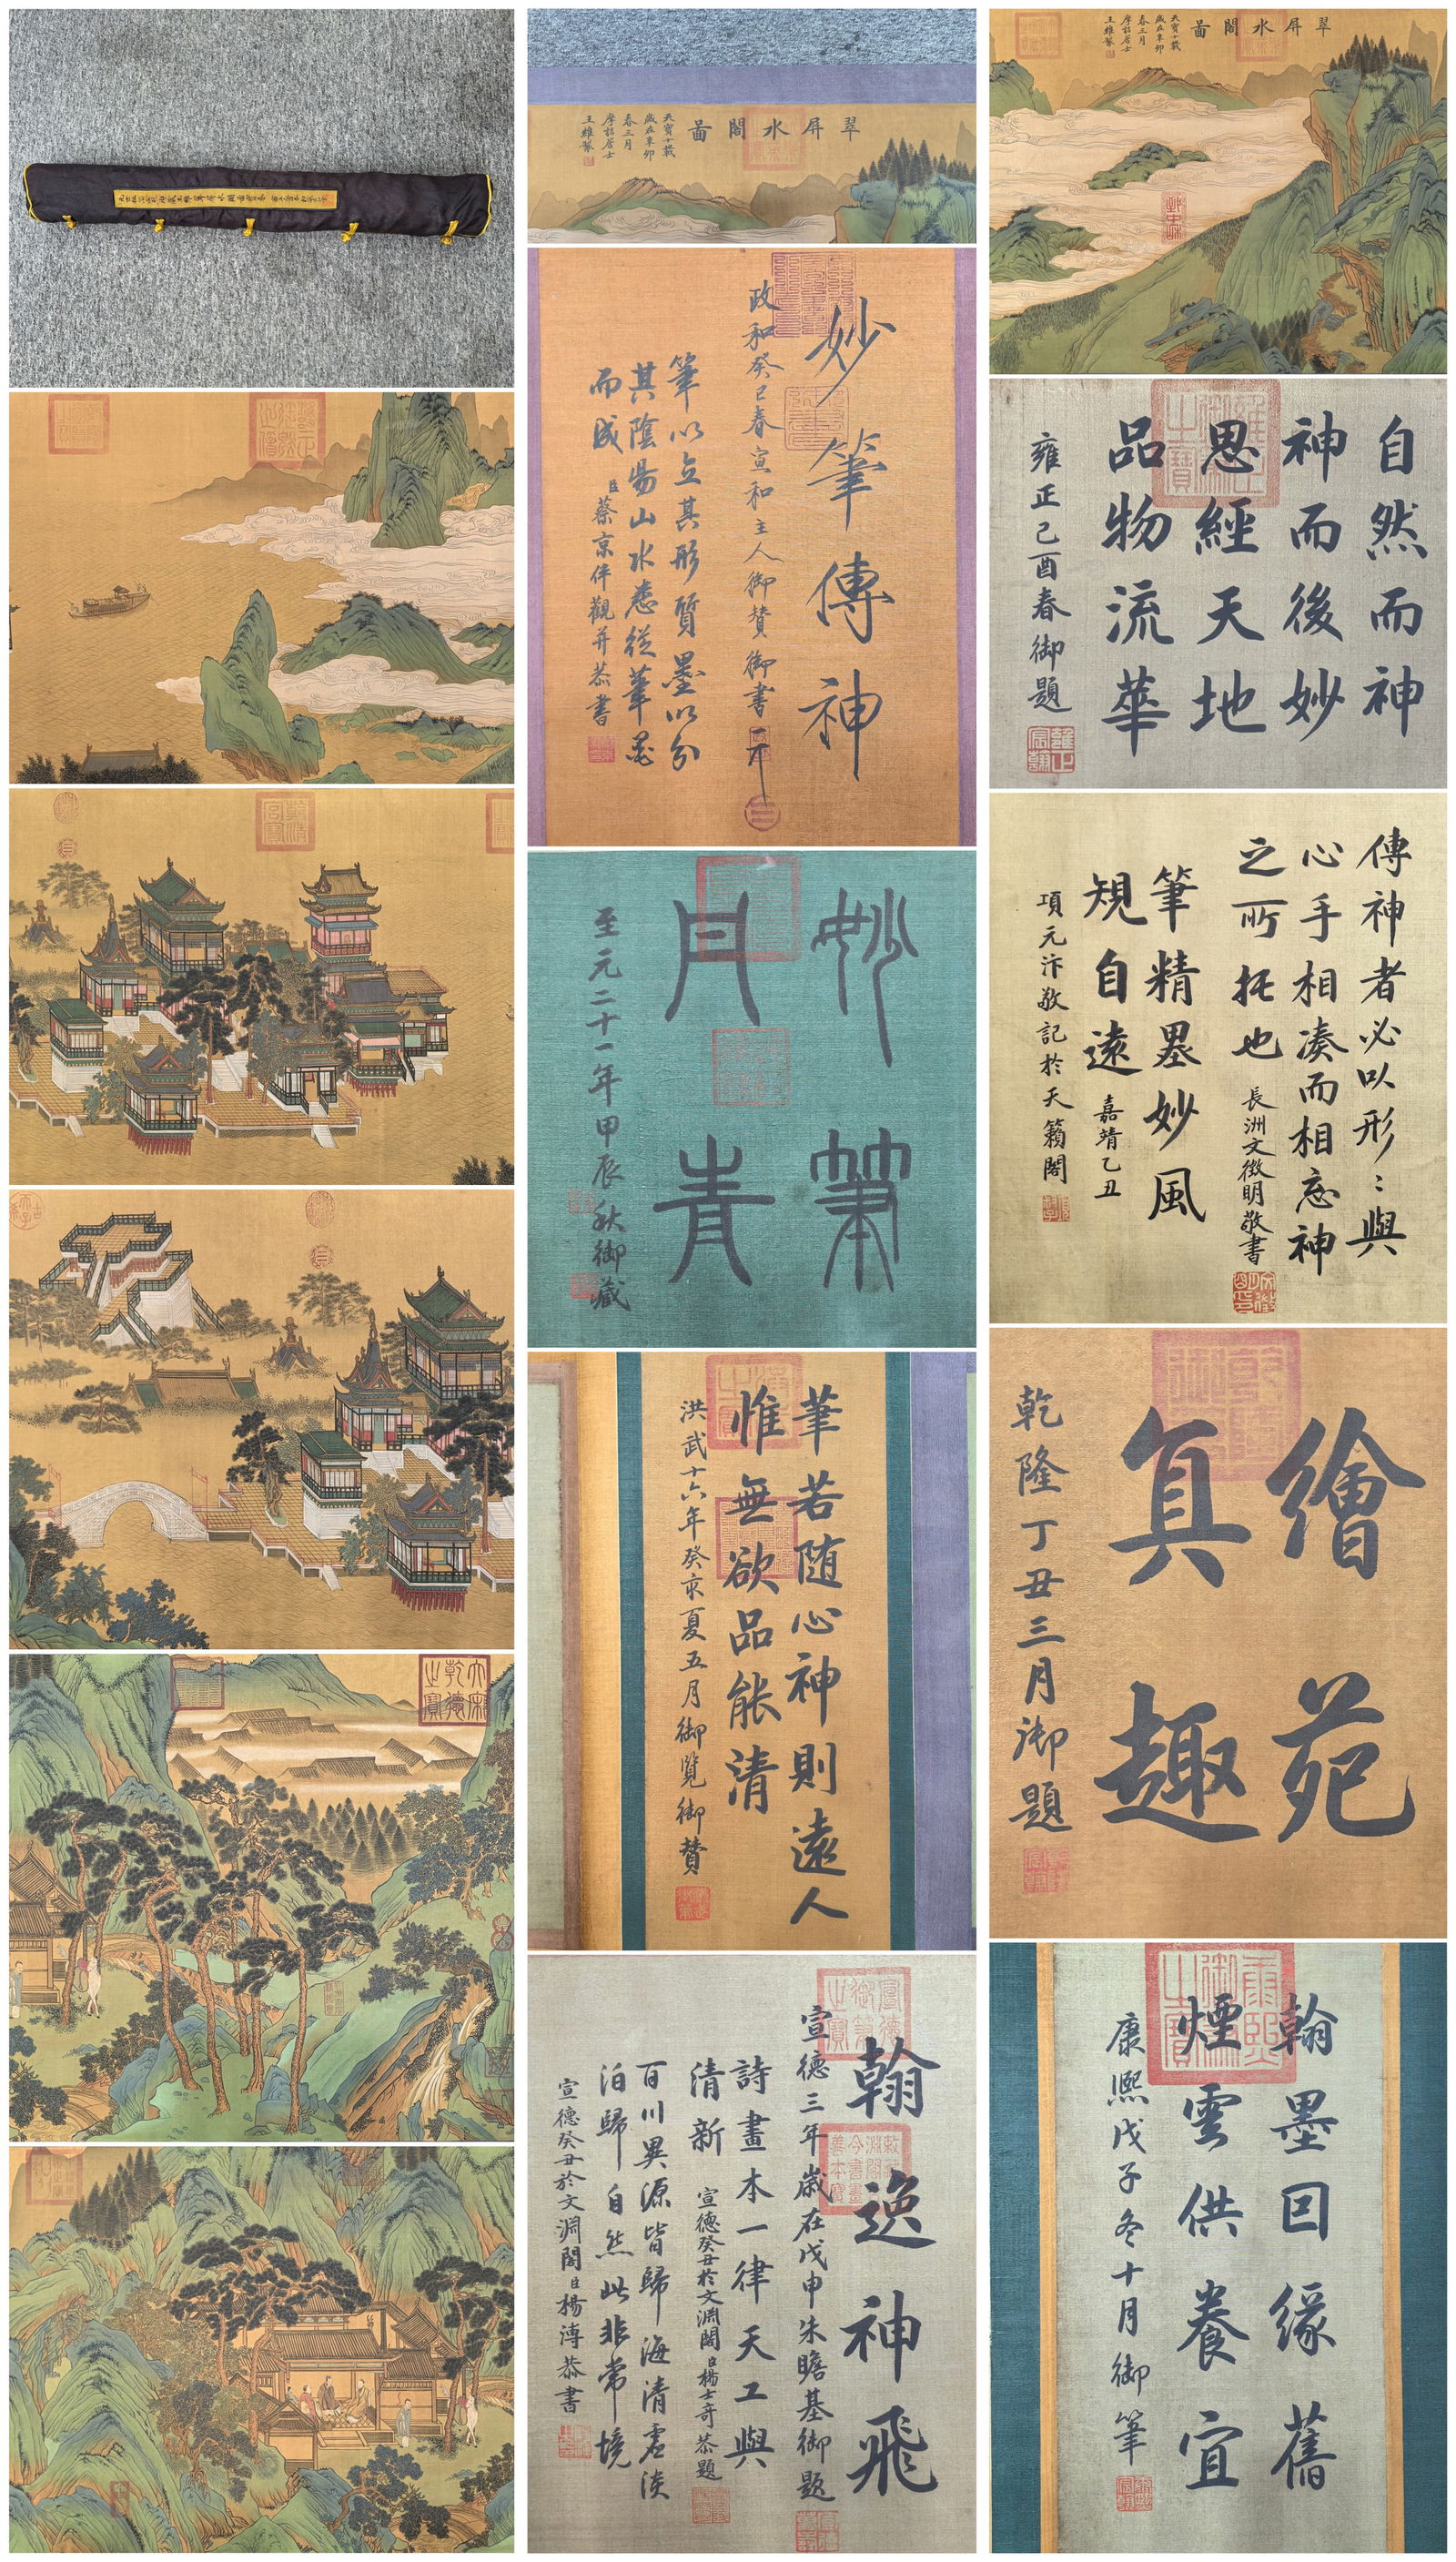 翠屏水閣啚
天寶十載
歲在辛卯
春三月
摩詰居士
王維製
妙筆傳神
政和癸巳春宣和主人御贊御書
筆以立其形質墨以分
其陰陽山水悉從筆墨
而成
臣蔡京伴觀并恭書
妙筆
丹青
至元二十一年甲辰秋御藏
筆若随心神則遠人
惟無欲品能清
洪武十六年癸亥夏五月御覽御贊
翰逸神飛
宣德三年歲在戊申朱瞻基御題
詩畫本一律天工與
清新
宣德癸丑於文淵閣臣楊士奇恭題
百川異源皆歸海清虛淡
泊歸自然此非常境
宣德癸丑於文淵閣臣楊溥恭書
翠屏水閣啚
天寶十載
歲在辛卯
春三月
摩詰居士
王維製
自然而神
神而後妙
思經天地
品物流華
雍正己酉春御題
傳神者必以形:與
心手相湊而相忘神
之所托也
長洲文徵明敬書
筆精墨妙風
規自遠
嘉靖乙丑
項元汴敬記於天籟閣
繪苑
真趣
乾隆丁丑三月御題
翰墨因緣舊
煙雲供養宜
康熙戊子冬十月御筆